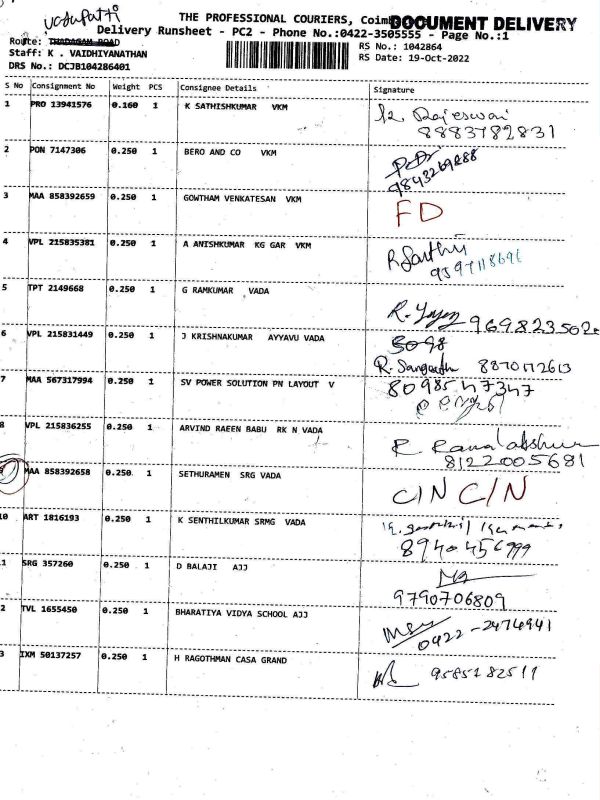 vadapatti
THE PROFESSIONAL COURIERS, Coim
DOCUMENT DELIVERY
Delivery Runsheet - PC2 - Phone No.:0422-3505555 - Page No.:1
Route: THADAGAM ROAD
RS No.: 1042864
Staff: K . VAIDHIYANATHAN
RS Date: 19-Oct-2022
DRS No.: DCJB104286401
S No Consignment No Weight PCS Consignee Details Signature
1 PRO 13941576 0.160 1 K SATHISHKUMAR VKM K. Rajeswari
8883782831
2 PON 7147306 0.250 1 BERO AND CO VKM
9843269288
3 MAA 858392659 0.250 1 GOWTHAM VENKATESAN VKM FD
4 VPL 215835381 0.250 1 A ANISHKUMAR KG GAR VKM
9597118691
5 TPT 2149668 0.250 1 G RAMKUMAR VADA
R. 969823502
6 VPL 215831449 0.250 1 J KRISHNAKUMAR AYYAVU VADA 8098
R. Sangeetha 8870172613
7 MAA 567317994 0.250 1 SV POWER SOLUTION PN LAYOUT V 8098547347
8 VPL 215836255 0.250 1 ARVIND RAEEN BABU RK N VADA
R
8122005681
9 MAA 858392658 0.250 1 SETHURAMEN SRG VADA C/N C/N
10 ART 1816193 0.250 1 K SENTHILKUMAR SRMG VADA
8940456999
1 SRG 357260 0.250 1 D BALAJI AJJ
9790706809
2 TVL 1655450 0.250 1 BHARATIYA VIDYA SCHOOL AJJ
0422-2474941
3 IXM 50137257 0.250 1 H RAGOTHMAN CASA GRAND 9585182511